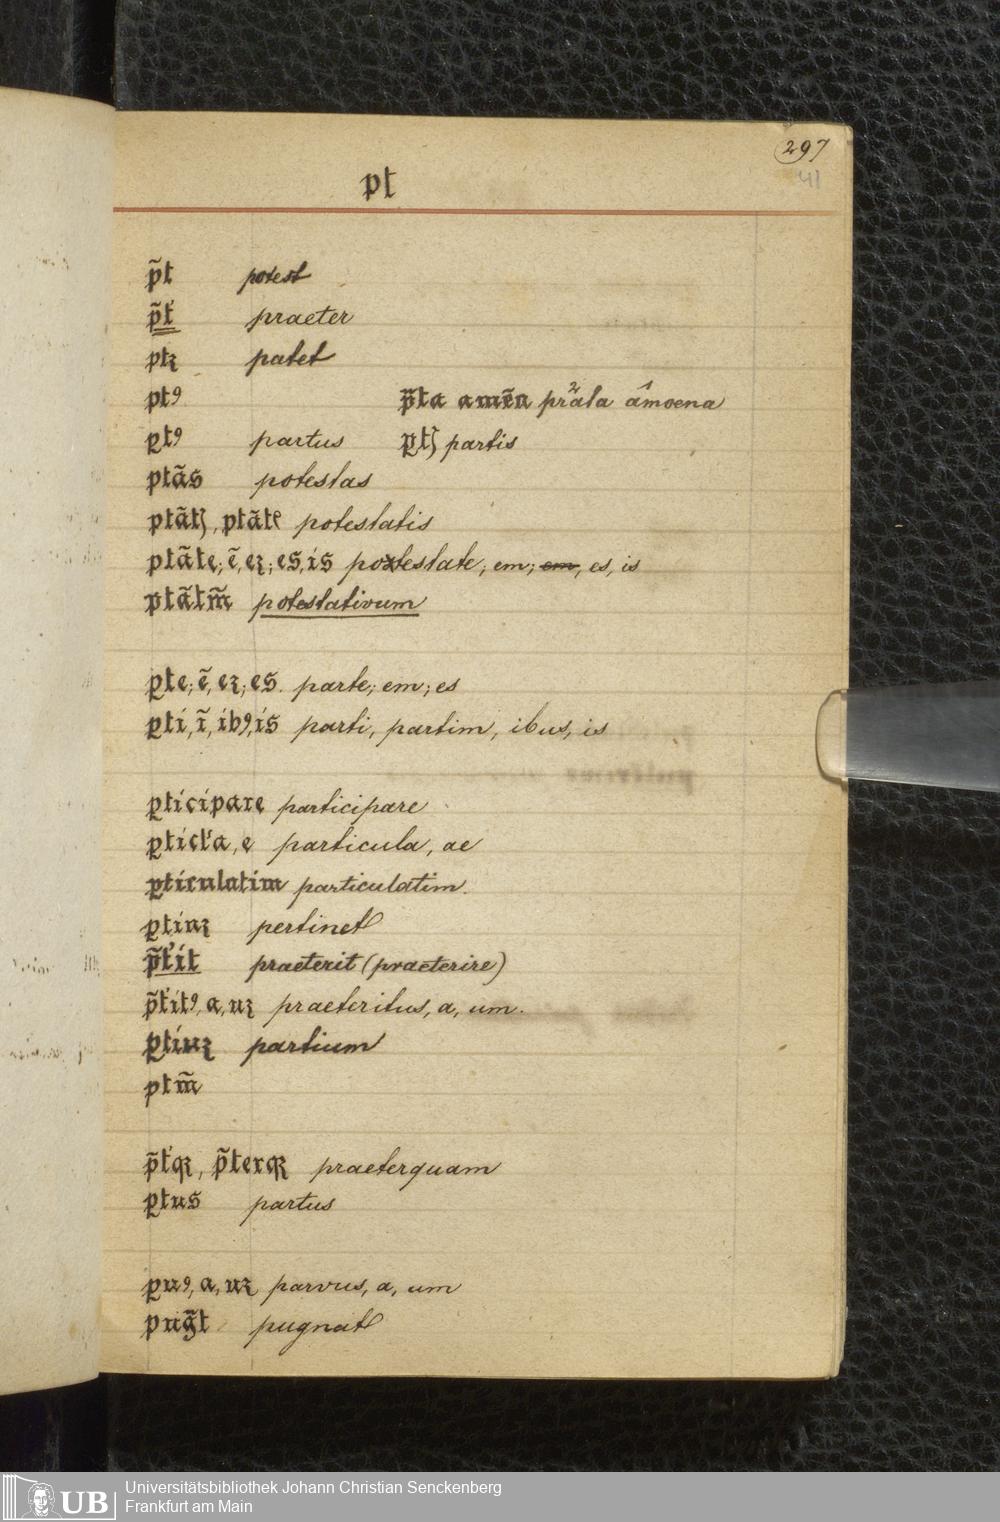 297
41
pt
p̃t potest
p̃t̓ praeter
ptꝫ patet
ptꝰ p̃ta amẽa präla âmoena
ꝑtꝰ partus ꝑtꝭ partis
ptãs potestas
ptãtꝭ, ptãte potestatis
ptãte; ẽ, eꝫ; es, is potestate; em; em, es, is
ptãtm̃ potestativum
ꝑte; ẽ, eꝫ; es. parte; em; es
ꝑti, ĩ, ibꝰ, is parti, partim, ibus, is
ꝑticipare participare
ꝑticl̓a, e particula, ae
ꝑticulatim particulatim.
ꝑtinꝫ pertinet
p̃t̓it praeterit (praeterire)
p̃t̓itꝰ, a, uꝫ praeteritus, a, um.
ꝑtiuꝫ partium
ptm̃
p̃t̓qꝫ, p̃terqꝫ praeterquam
ꝑtus partus
ꝑuꝰ, a, uꝫ parvus, a, um
pug̃t pugnat
UB Universitätsbibliothek Johann Christian Senckenberg
Frankfurt am Main